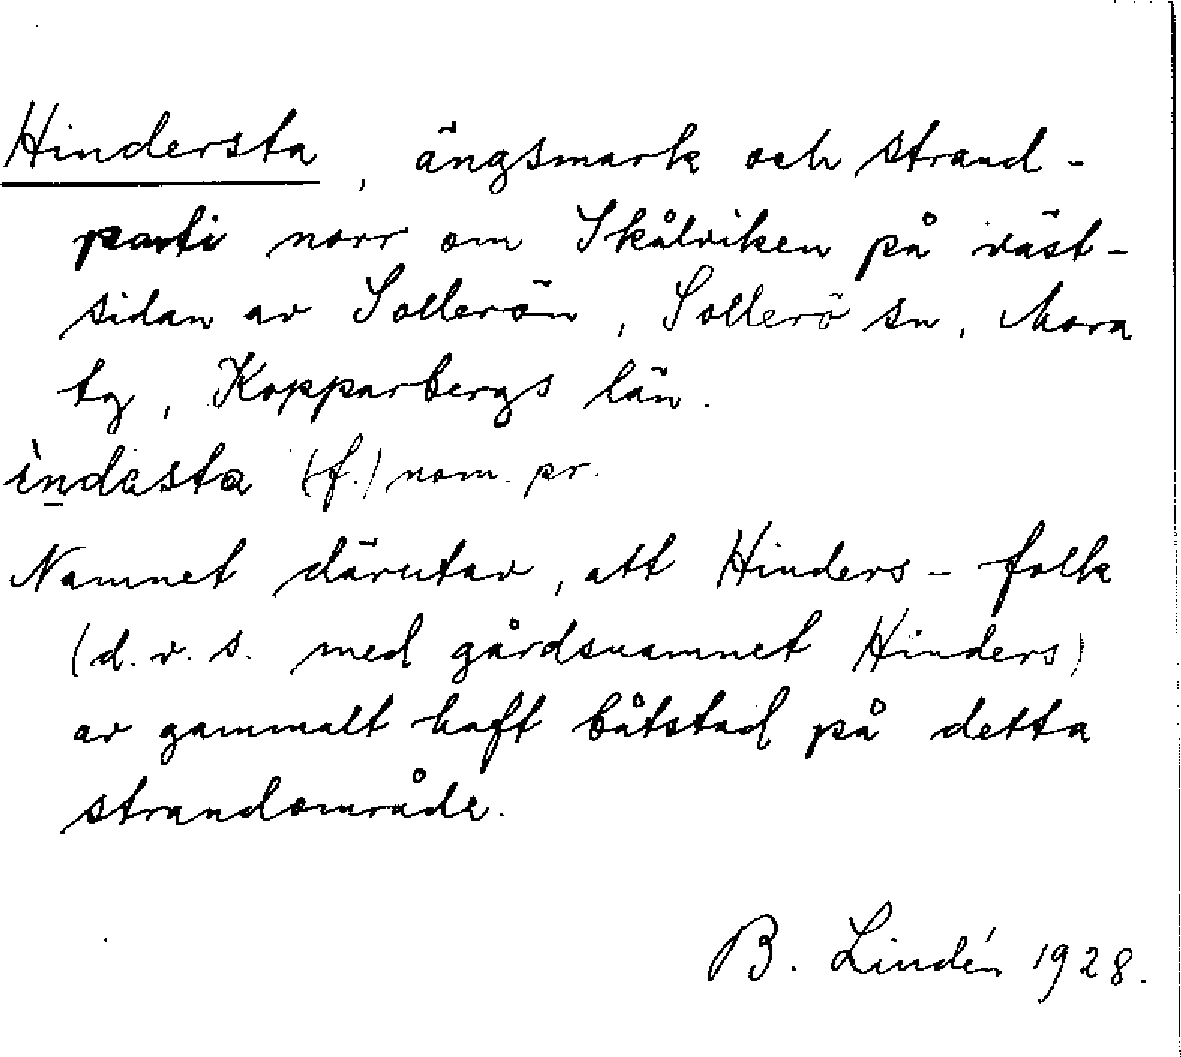 Hindersta, ängsmark och strand-
parti norr om Skålviken på väst-
sidan av Sollerön, Sollerö sn, Mora
tg, Kopparbergs län.
ìn̲dasta (f.) nom. pr.
Namnet därutav, att Hinders-folk
(d.v.s. med gårdsnamnet Hinders)
av gammalt haft båtstad på detta
strandområde.
B. Lindén 1928.